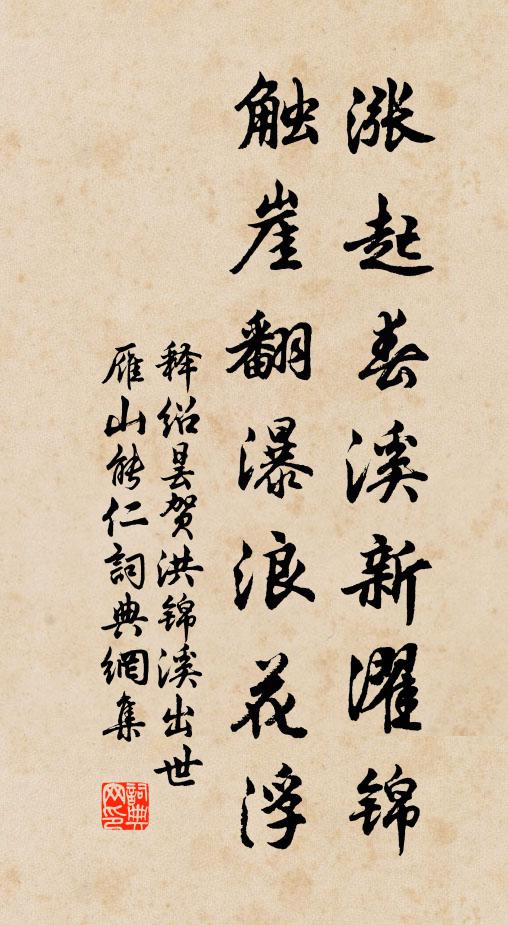 涨起春溪新濯锦
触崖翻瀑浪花浮
释绍昙贺洪锦溪出世
雁山能仁詞典網集
詞典网印